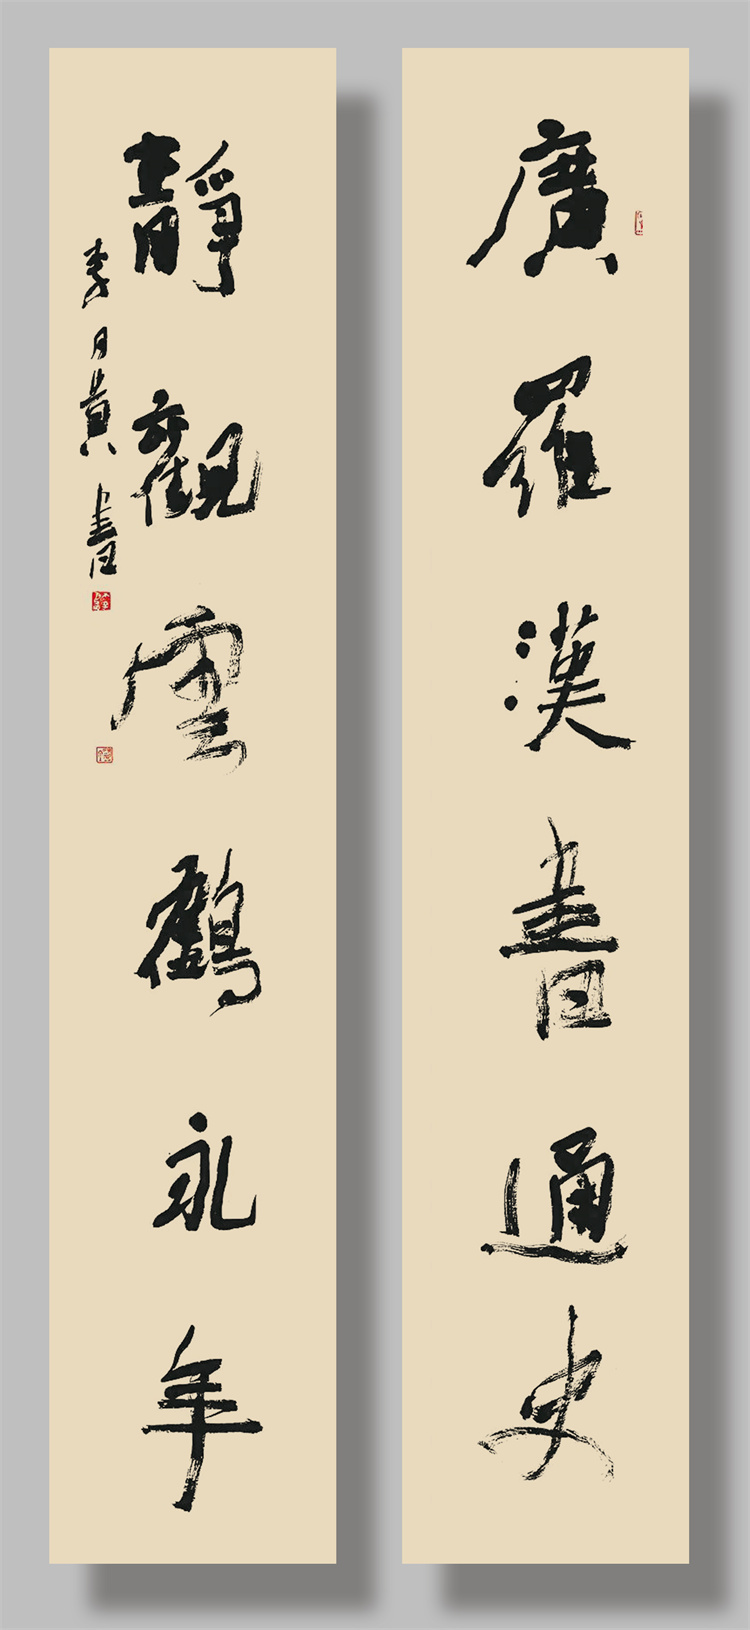 廣羅漢書通史
靜觀雲鶴永年
李月黄書